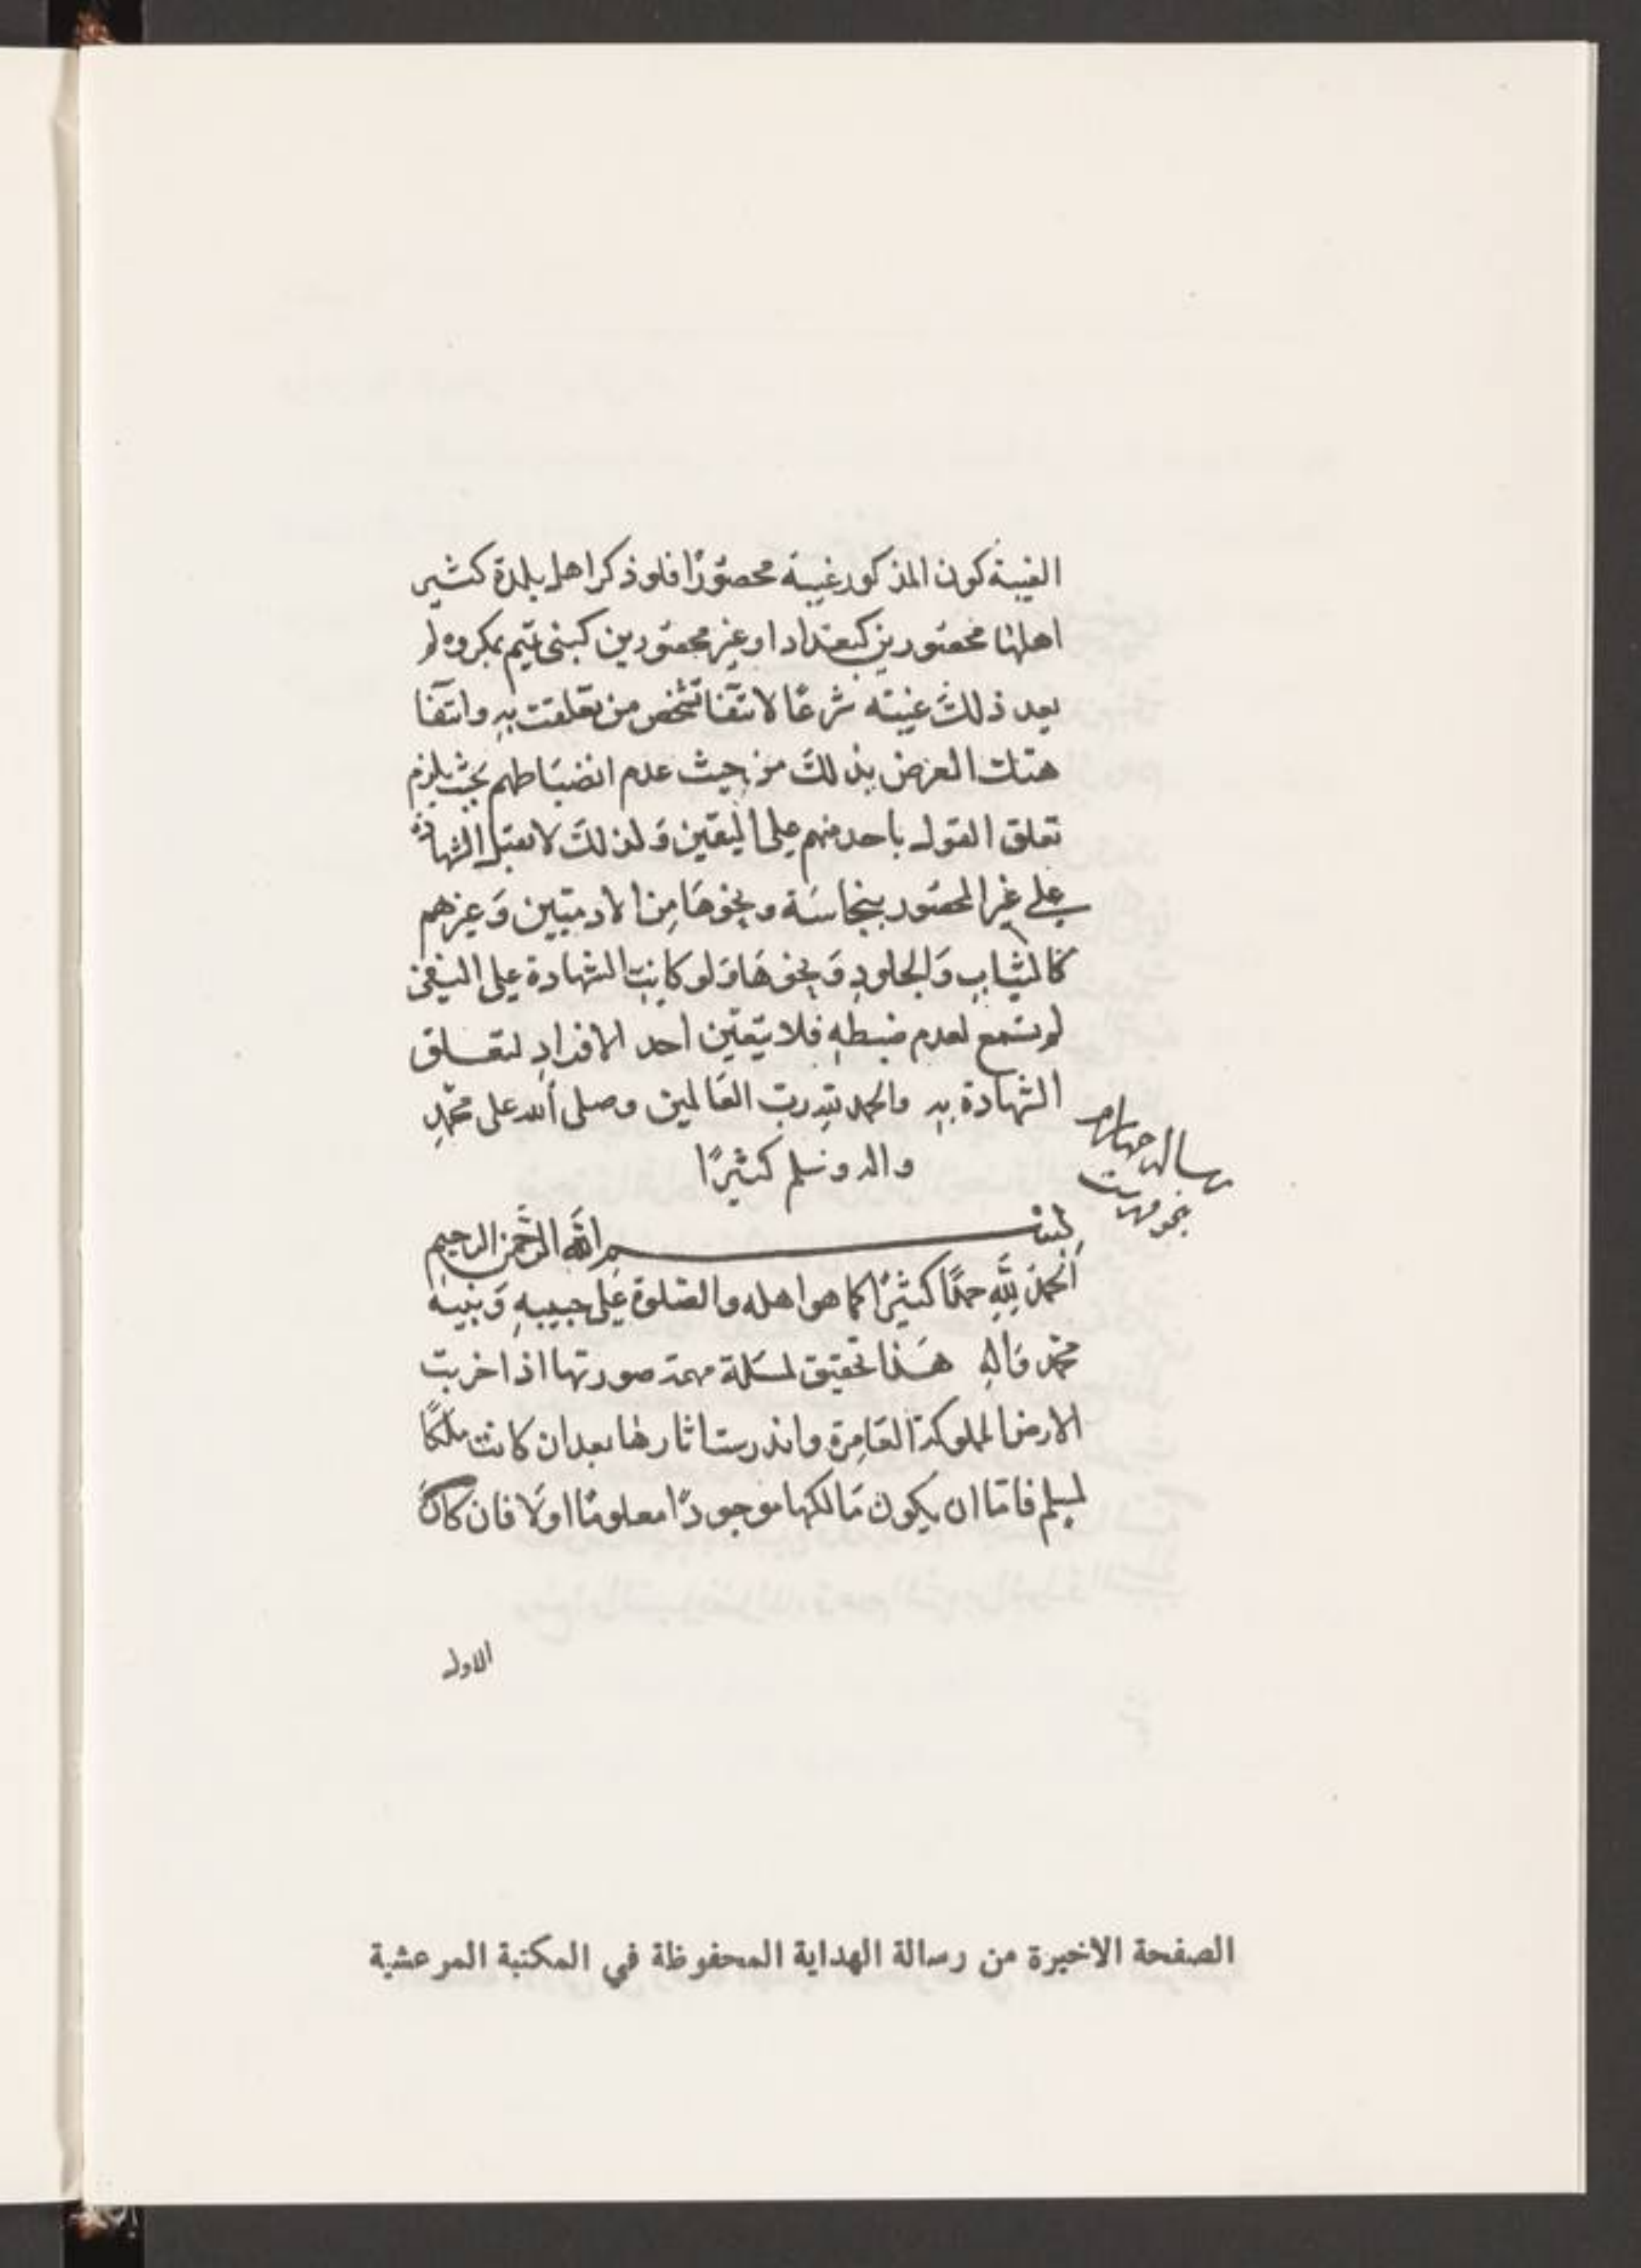 الغيبة كون المذكور غيبة محصورًا فلو ذكر اهل بلدة كثير
اهلها محصورين كبغداد او غير محصورين كبنى تميم بمكروه لم
يعد ذلك غيبته شرعًا لانتفا تشخص من تعلقت به وانتفا
هتك العرض بذلك من حيث عدم انضباطهم بحيث يلزم
تعلق القول باحد منهم على اليقين وَلذلك لا تقبل الشهادة
على غير المحصور بنجاسَة ونحوهَا مِن الادميّين وَغيرهم
كَالثيابِ وَالجلودِ وَنحوهَا وَلو كانت الشهادة على النفى
لم تسمع لعدم ضبطهِ فلا يتعيّن احد الافرادِ لتعلق
الشهادة بهِ والحمد للهِ ربّ العَالمين وصلى الله على محمّدٍ
واله وسلم كثيرًا
رساله چهارم
بِسْم اللّه الرَّحمن الرحيم
اَلحمدُ لِلّهِ حمدًا كثيرًا كما هو اهله والصّلوة عَلى حبيبهِ وَنبيه
محمّد وَالهِ هَذا تحقيق لمسَلة مهمة صورتها اذا خربت
الارض المملوكة العَامِرة واندرست اثارها بعد ان كانت ملكًا
لمسلم فامّا ان يكون مَالكها موجودًا معلومًا اوَلا فان كانَ
الاول
الصفحة الاخيرة من رسالة الهداية المحفوظة في المكتبة المرعشية